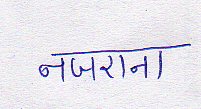 नजराना